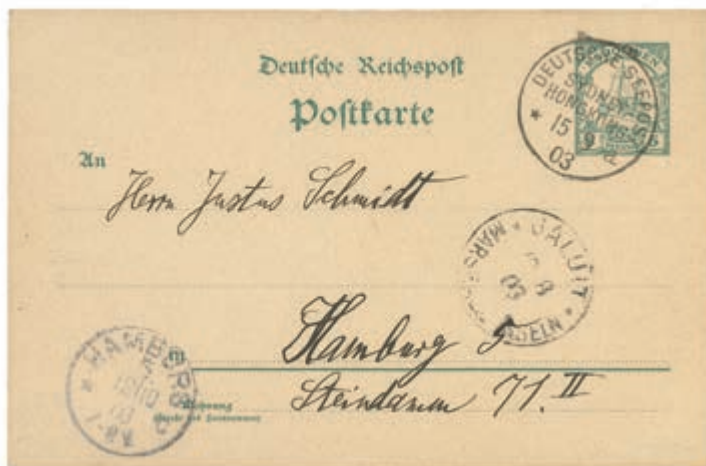 Deutsche Reichspost
Postkarte
DEUTSCHE SEEPOST
SYDNEY-
HONGKONG
* 15 9
03
An
Herrn Justus Schmidt
JALUIT *
MARSHALL-INSELN *
8
03
in
Hamburg 5
Steindamm 71. II
HAMBURG
*
Wohnung